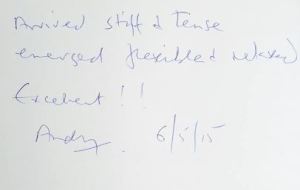 Arrived stiff & Tense
emerged flexible & relaxed
Excellent !!
Andy. 6/5/15